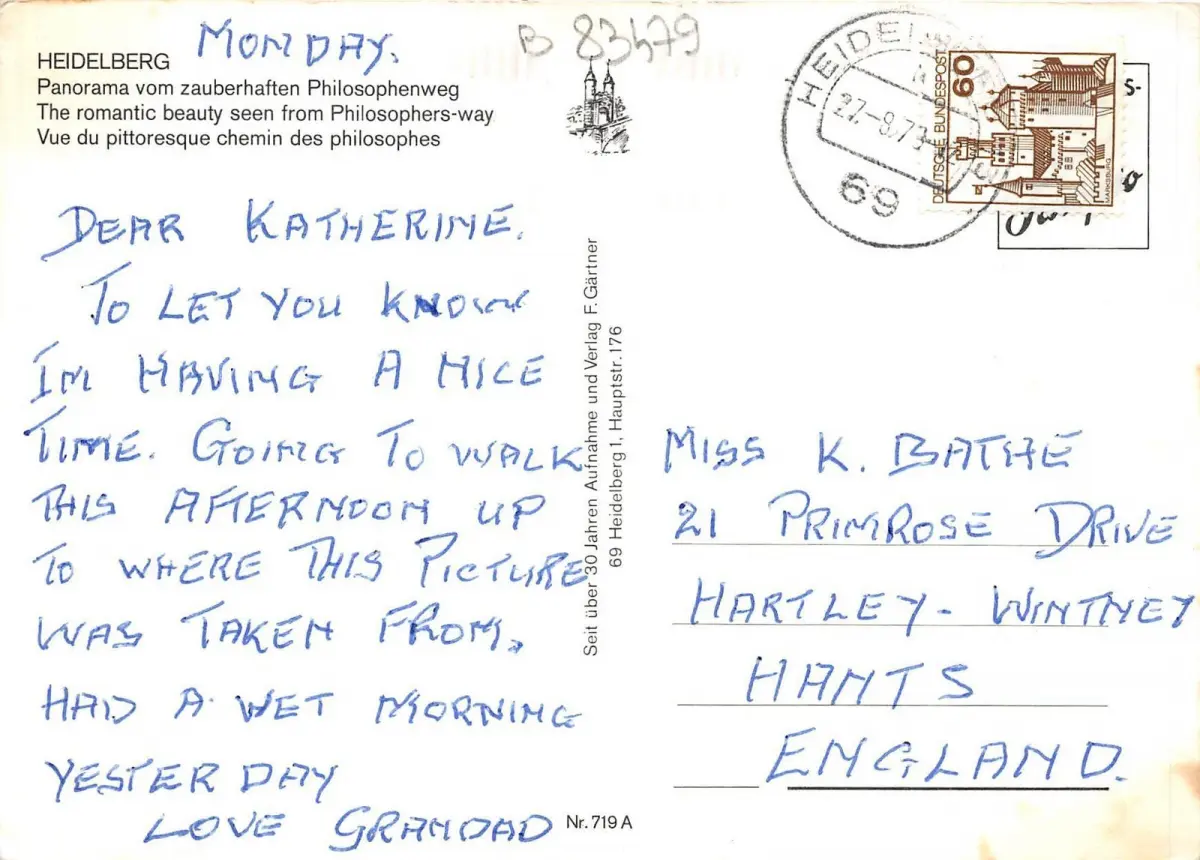 MONDAY.
B 83479
HEIDELBERG
Panorama vom zauberhaften Philosophenweg
The romantic beauty seen from Philosophers-way
Vue du pittoresque chemin des philosophes
DEAR KATHERINE.
TO LET YOU KNOW
IM HAVING A NICE
TIME. GOING TO WALK
THIS AFTERNOON UP
TO WHERE THIS PICTURE
WAS TAKEN FROM.
HAD A WET MORNING
YESTERDAY
LOVE GRANDAD
Nr. 719 A
Seit über 30 Jahren Aufnahme und Verlag F. Gärtner
69 Heidelberg 1, Hauptstr. 176
69
60
DEUTSCHE BUNDESPOST
MARKSBURG
MISS K. BATHE
21 PRIMROSE DRIVE
HARTLEY-WINTNEY
HANTS
ENGLAND.